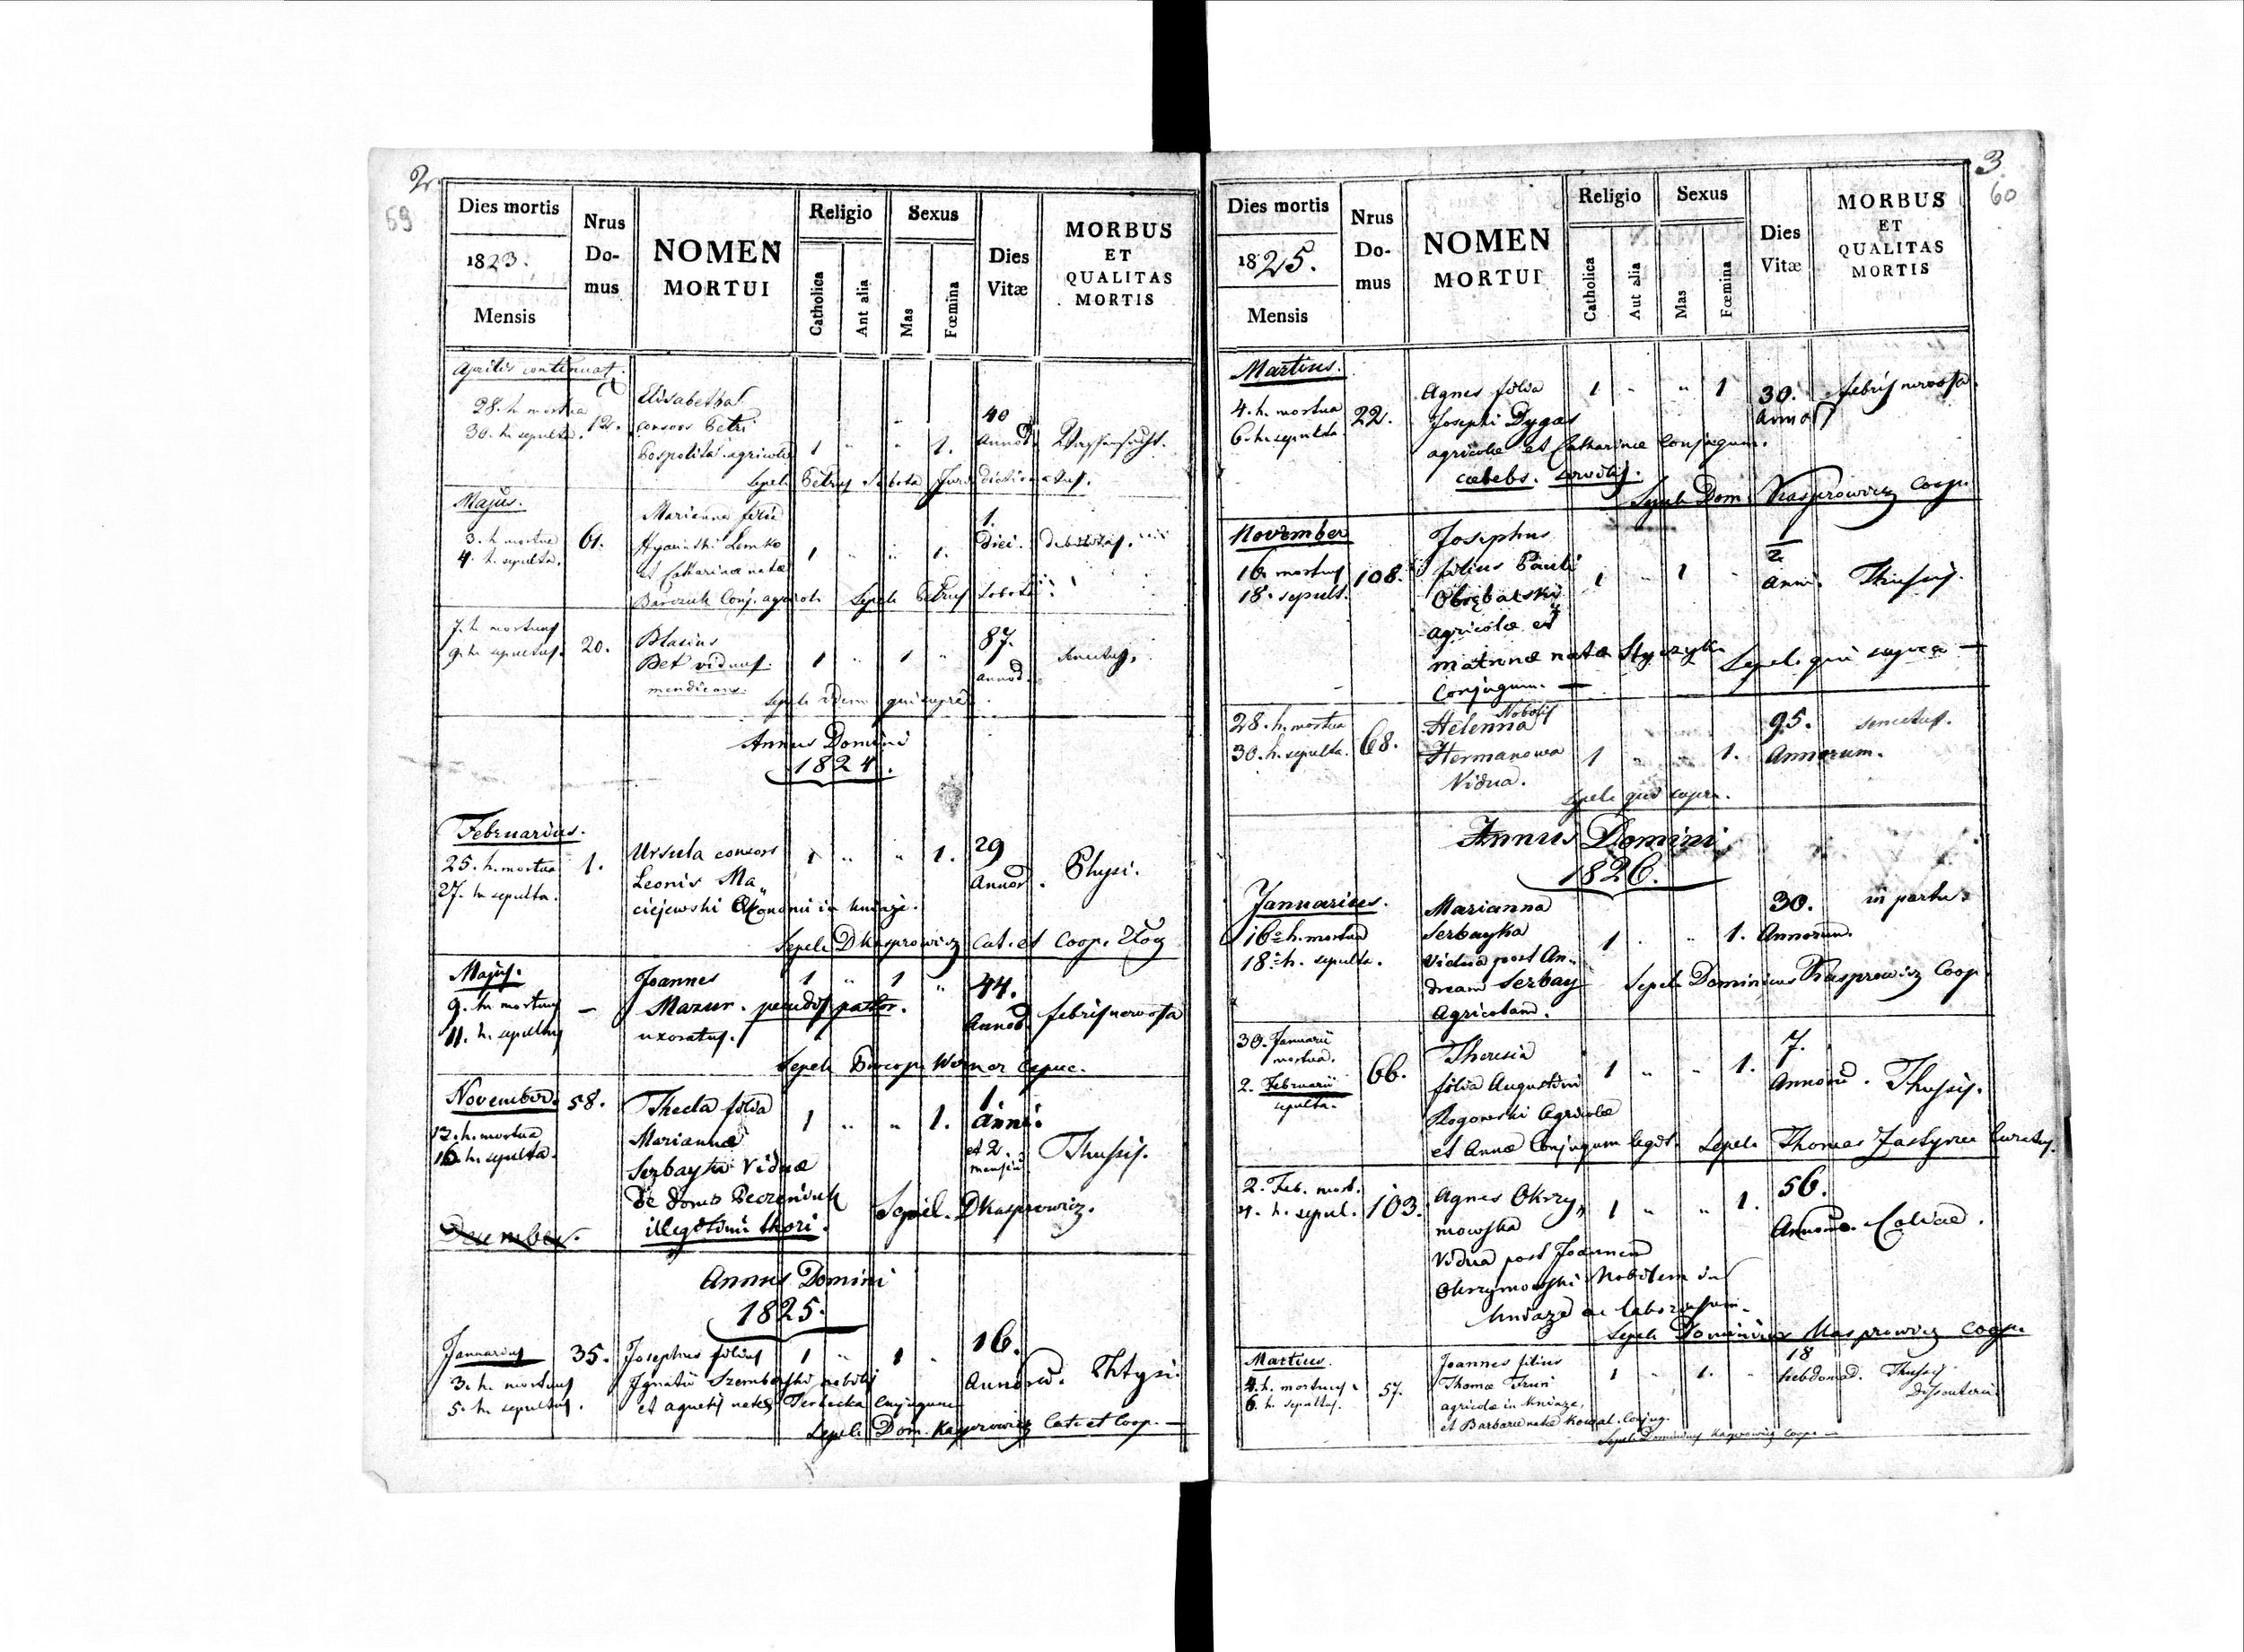 2.
59
Dies mortis
1823.
Mensis
Nrus
Do-
mus
NOMEN
MORTUI
Religio
Catholica
Ant alia
Sexus
Mas
Fœmina
Dies
Vitæ
MORBUS
ET
QUALITAS
MORTIS
Aprilis continuat.
28. h. mortua
30. h. sepulta.
12.
Elisabetha
consors Petri
Pospolita agricolæ
1 " " 1.
40
Annor.
Wassersucht.
Sepeli Petrus Sobota Jurisdictionatus.
Majus.
3. h. mortua
4. h. sepulta.
61.
Marianna filia
Hyacinthi Lemko
et Catharinæ natæ
Barczuk Conj. agricol.
1 " " 1.
1.
Diei.
debilitas.
Sepeli Petrus Sobota
7. h. mortuus
9. h. sepultus.
20.
Blasius
Bet viduus.
mendicans.
1 " 1 "
87.
annor.
senectus.
Sepeli idem qui supra
Annus Domini
1824.
Februarius.
25. h. mortua
27. h. sepulta.
1.
Ursula consors
Leonis Ma„
ciejewski Œconomi in Kniaze.
1 " " 1.
29
Annor.
Phtysi.
Sepeli D Kasprowicz Cat. et Coop.
Majus.
9. h. mortuus
11. h. sepultus
—
Joannes
Mazur.
uxoratus.
1 " 1 "
44.
Annor.
febris nervosa
Sepeli Procop Werner Capuc.
November.
12. h. mortua
16. h. sepulta.
58.
Thecla filia
Mariannæ
Serbayka Viduæ
de domo Peczeniuk
illegitimi thori.
1 " " 1.
1.
anni.
et 2.
mensiū
Thussis.
Sepel. D Kasprowicz.
December.
Annus Domini
1825.
Januarius
3. h. mortuus
5. h. sepultus.
35.
Josephus filius
Ignatii Szembelski nobilis
et Agnetis natæ Terlecka Conjugum
1 " 1 "
16.
Annorū.
Phtysi.
Sepeli Dom. Kasprowicz Cat. et Coop. —
3.
60
Dies mortis
1825.
Mensis
Nrus
Do-
mus
NOMEN
MORTUI
Religio
Catholica
Aut alia
Sexus
Mas
Fœmina
Dies
Vitæ
MORBUS
ET
QUALITAS
MORTIS
Martius.
4. h. mortua
6. h. sepulta
22.
Agnes filia
Josephi Dygas
agricolæ et Catharinæ Conjugum.
cœlebs. servilis.
1 " " 1
30.
Annor
febris nervosa.
Sepeli Dom. Kasprowicz Coop.
November
16. mortuus
18. sepult.
108.
Josephus
filius Pauli
Obrębalski
agricolæ et
Mariannæ natæ Styczyk
Conjugum. —
1 " 1 "
1/2
Anni.
Thussis.
Sepeli qui supra —
28. h. mortua
30. h. sepulta.
68.
Nobilis
Helenna
Hermanowa
Vidua.
1 " " 1.
95.
Annorum.
senectus.
Sepeli qui supra.
Annus Domini
1826.
Januarius.
16. h. mortua
18. h. sepulta.
Marianna
Serbayka
Vidua post An„
dream Serbay
Agricolam.
1 " " 1.
30.
Annorum.
in partu.
Sepeli Dominicus Kasprowicz Coop.
30. Januarii
mortua.
2. Februarii
sepulta.
66.
Theresia
filia Augustini
Rogowski Agricolæ
et Annæ Conjugum legit.
1 " " 1.
7.
Annorū.
Thussis.
Sepeli Thomas Curatus.
2. Feb. mort.
4. h. sepul.
103.
Agnes Okrzy„
mowska
Vidua post Joannem
Okrzymowski Nobilem in
Kniaze
1 " " 1.
56.
Annorū.
Colica.
Sepeli Dominicus Kasprowicz Coop.
Martius.
4. h. mortuus.
6. h. sepultus.
57.
Joannes filius
Thomæ
agricolæ in Kniaze,
et Barbaræ natæ Kowal. Conjug.
1 " 1. "
18
hebdomad.
Thussis
Sepeli Dominicus Kasprowicz Coop. —